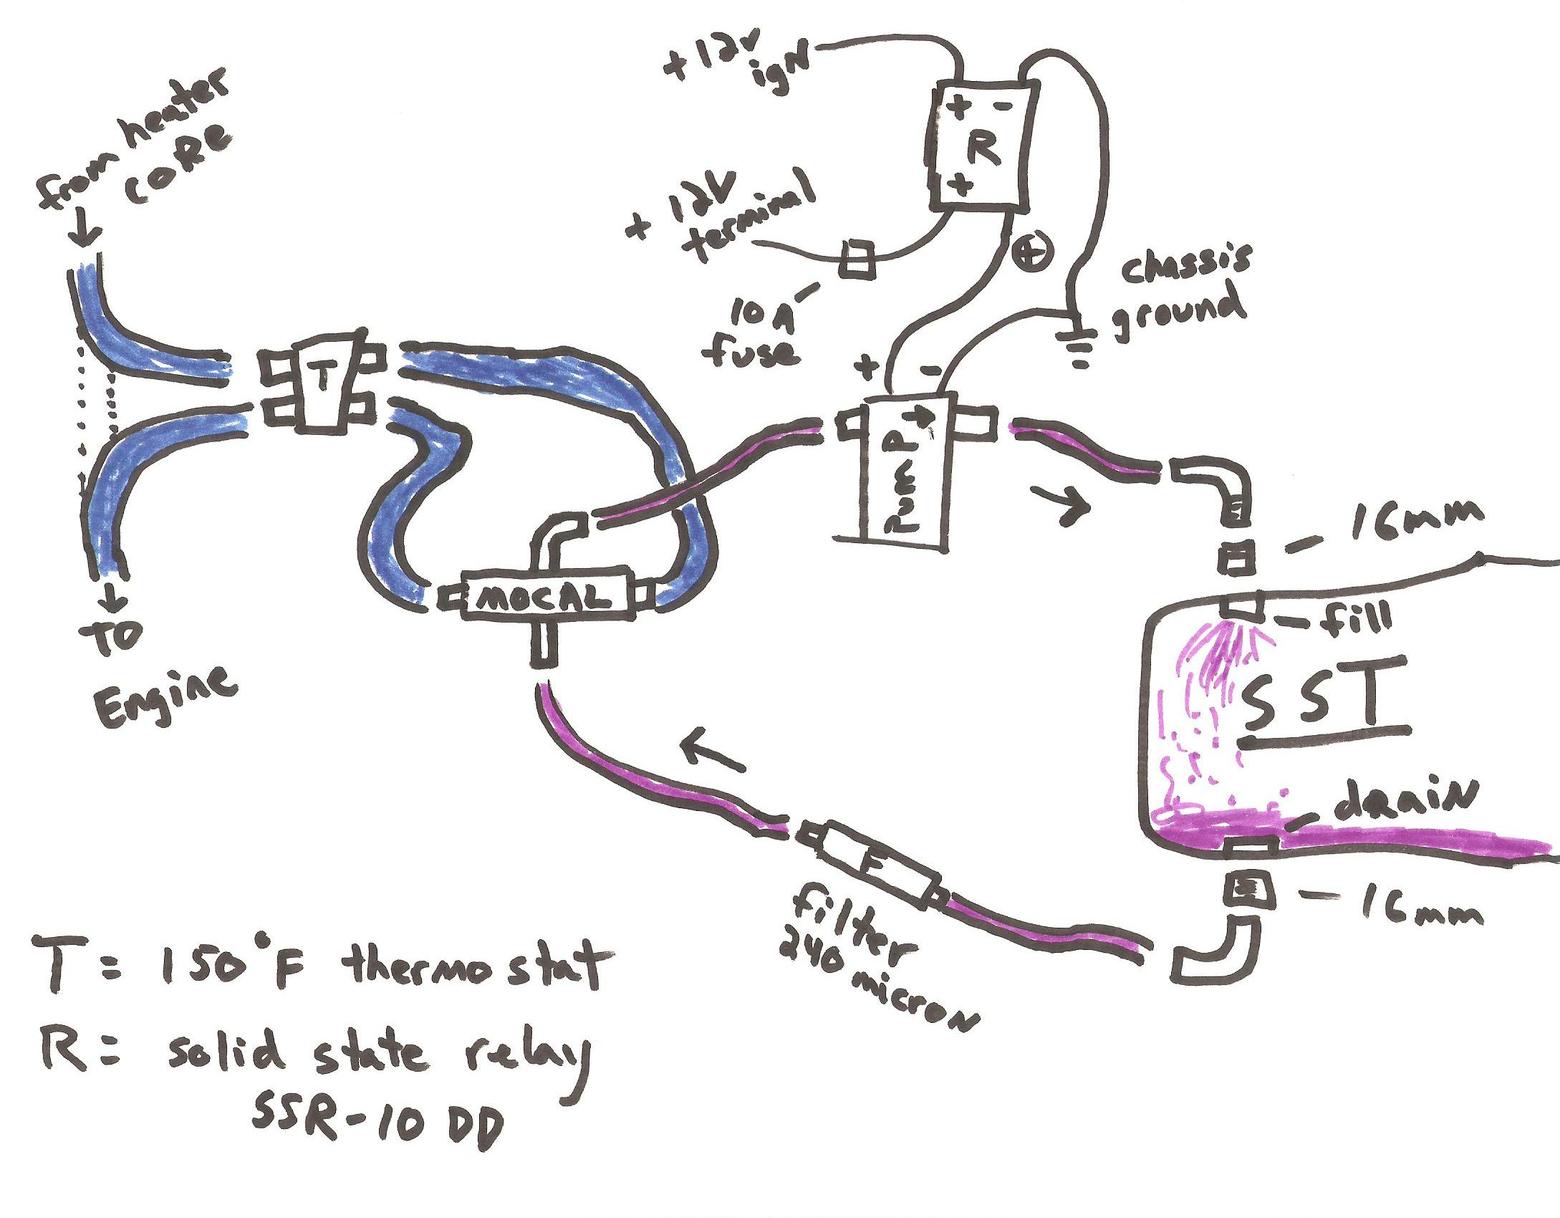 +12v
ign
from heater
CORE
+ -
R
+
+ 12V
terminal
10A
fuse
+
chassis
ground
+ -
T
PUMP
16mm
MOCAL
fill
SST
TO
Engine
drain
F
16mm
filter
240 micron
T = 150°F thermostat
R = solid state relay
SSR-10 DD